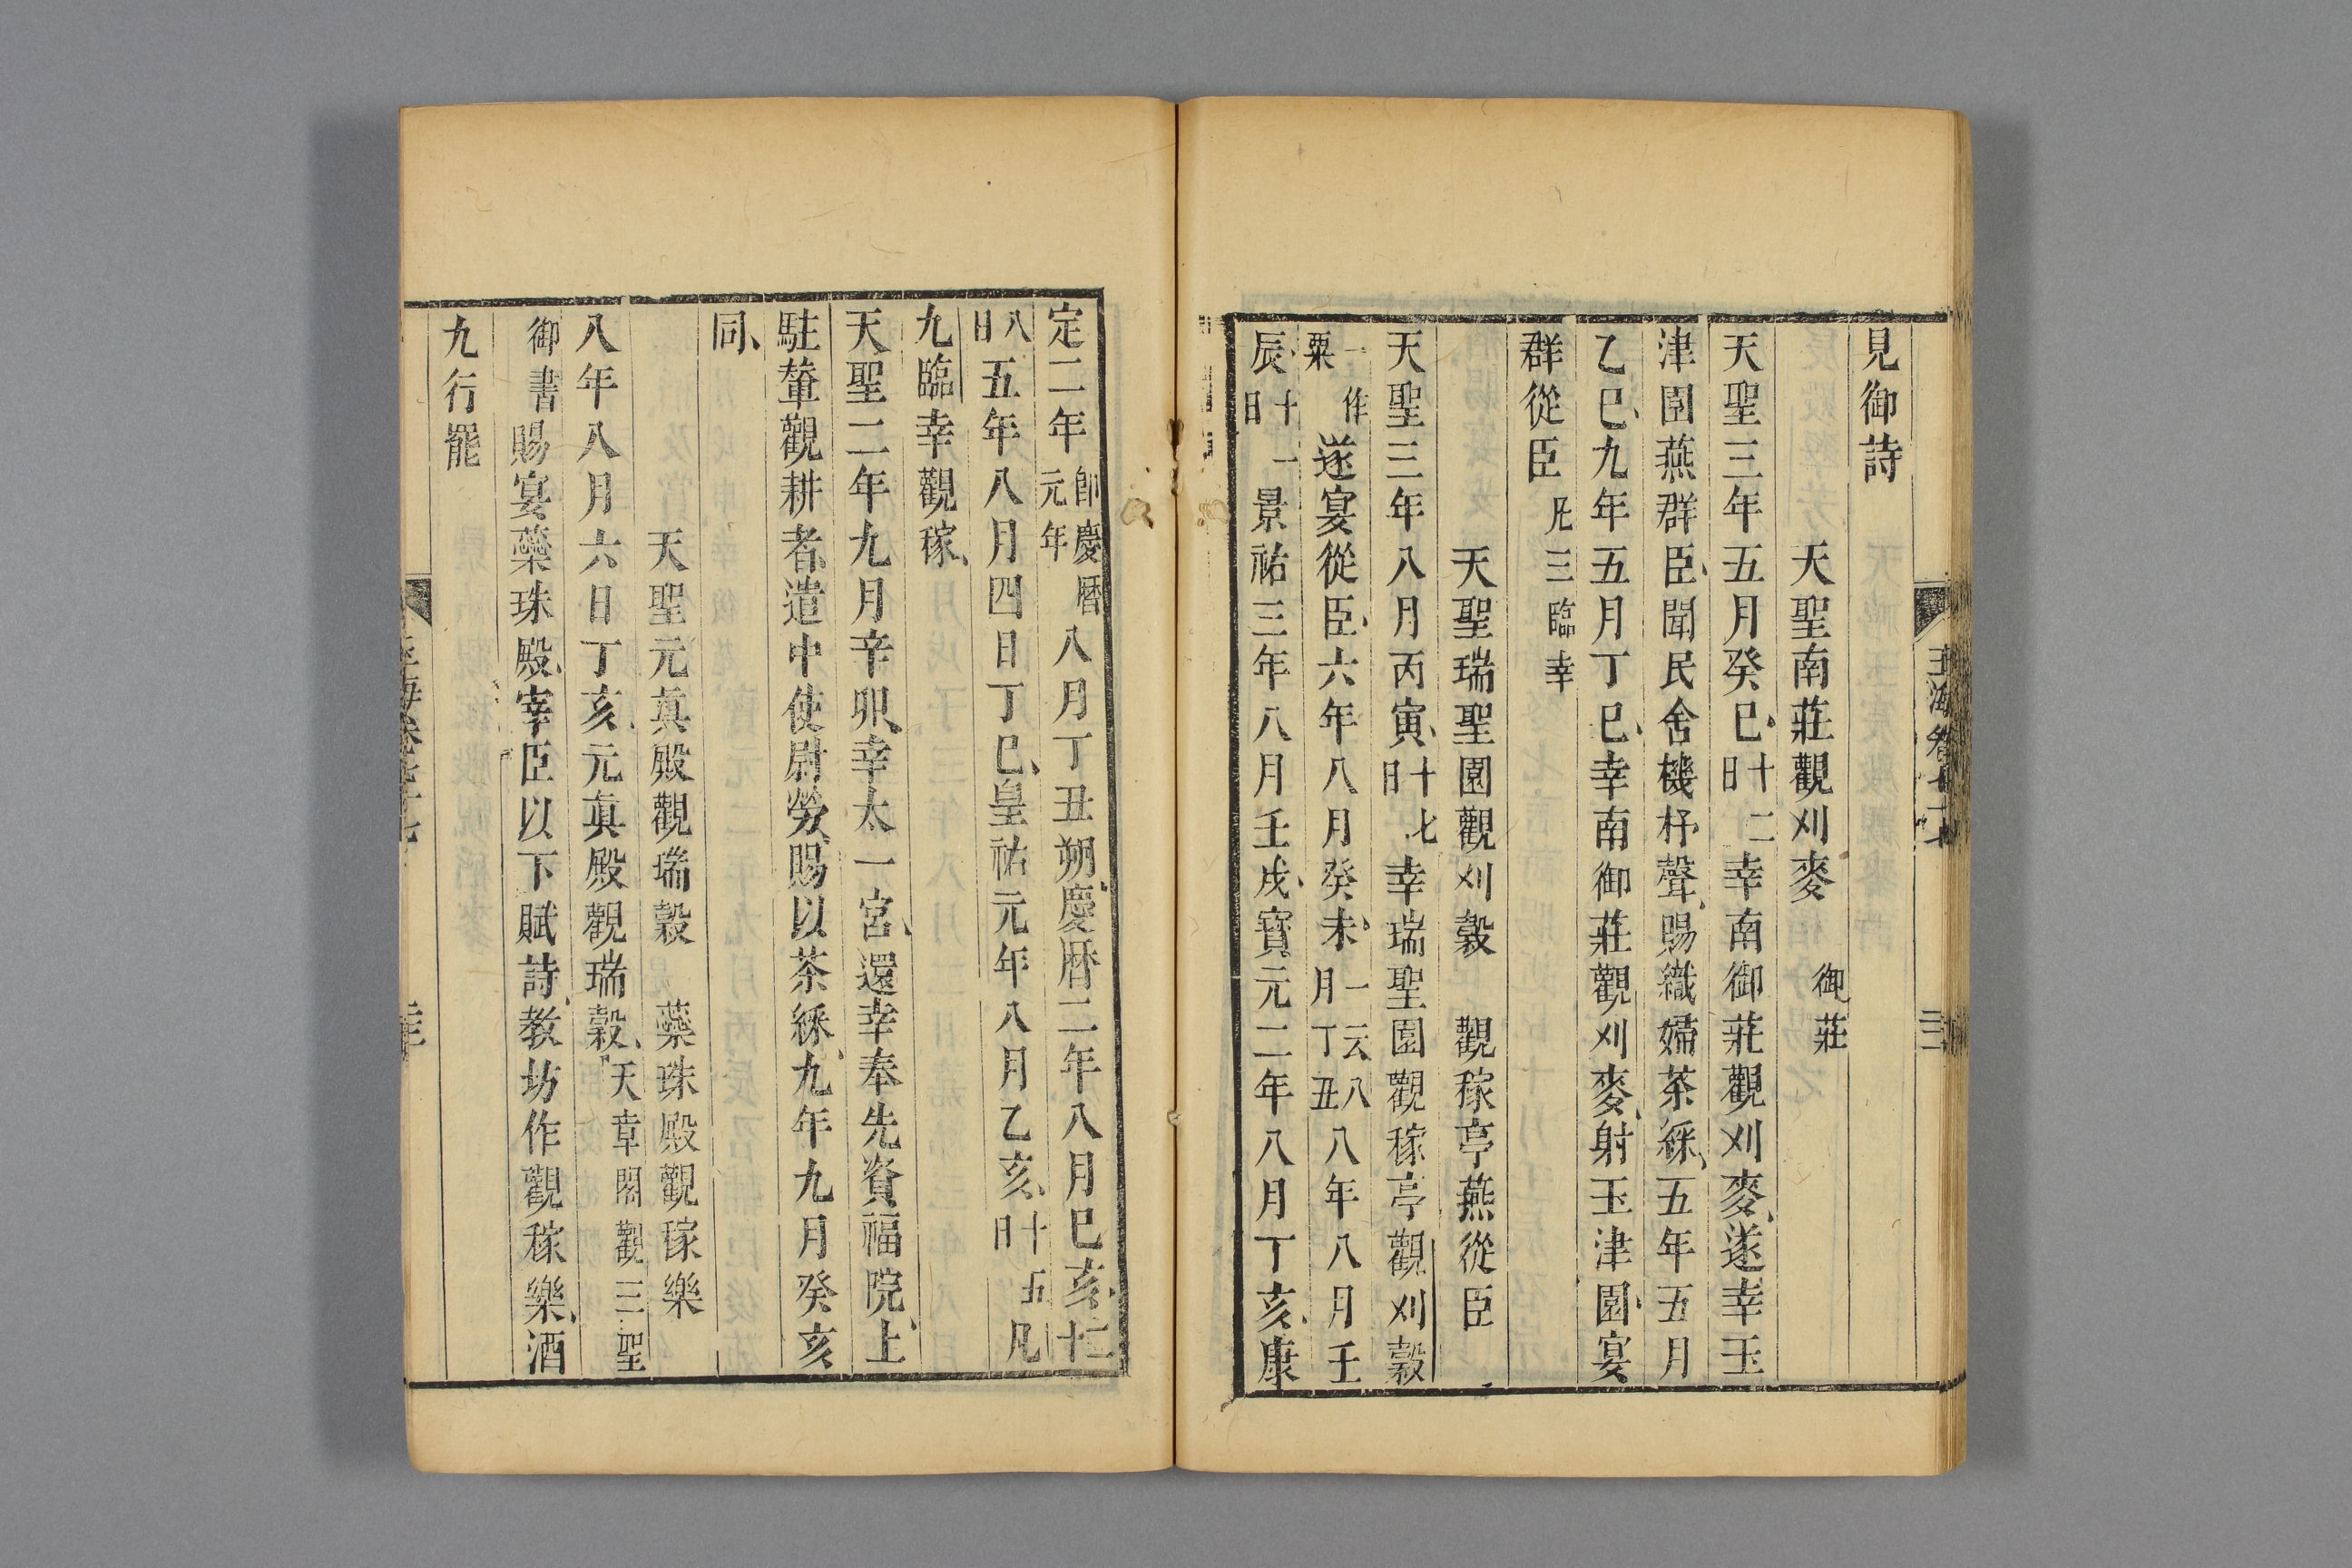 見御詩
天聖南莊觀刈麥 御莊
天聖三年五月癸巳十二日幸南御莊觀刈麥遂幸玉
津園燕群臣聞民舍機杼聲賜織婦茶綵五年五月
乙巳九年五月丁巳幸南御莊觀刈麥射玉津園宴
群從臣凡三臨幸
天聖瑞聖園觀刈穀 觀稼亭燕從臣
天聖三年八月丙寅十七日幸瑞聖園觀稼亭觀刈穀
一作粟遂宴從臣六年八月癸未一云八月丁丑八年八月壬
辰十一日景祐三年八月壬戌寶元二年八月丁亥康
定二年即慶曆元年八月丁丑朔慶曆二年八月己亥十二
八日五年八月四日丁巳皇祐元年八月乙亥十五日凡
九臨幸觀稼
天聖二年九月辛卯幸太一宮還幸奉先資福院上
駐輦觀耕者遣中使尉勞賜以茶綵九年九月癸亥
同
天聖元真殿觀瑞穀 蘂珠殿觀稼樂
八年八月六日丁亥元真殿觀瑞穀天章閣觀三聖
御書賜宴蘂珠殿宰臣以下賦詩教坊作觀稼樂酒
九行罷